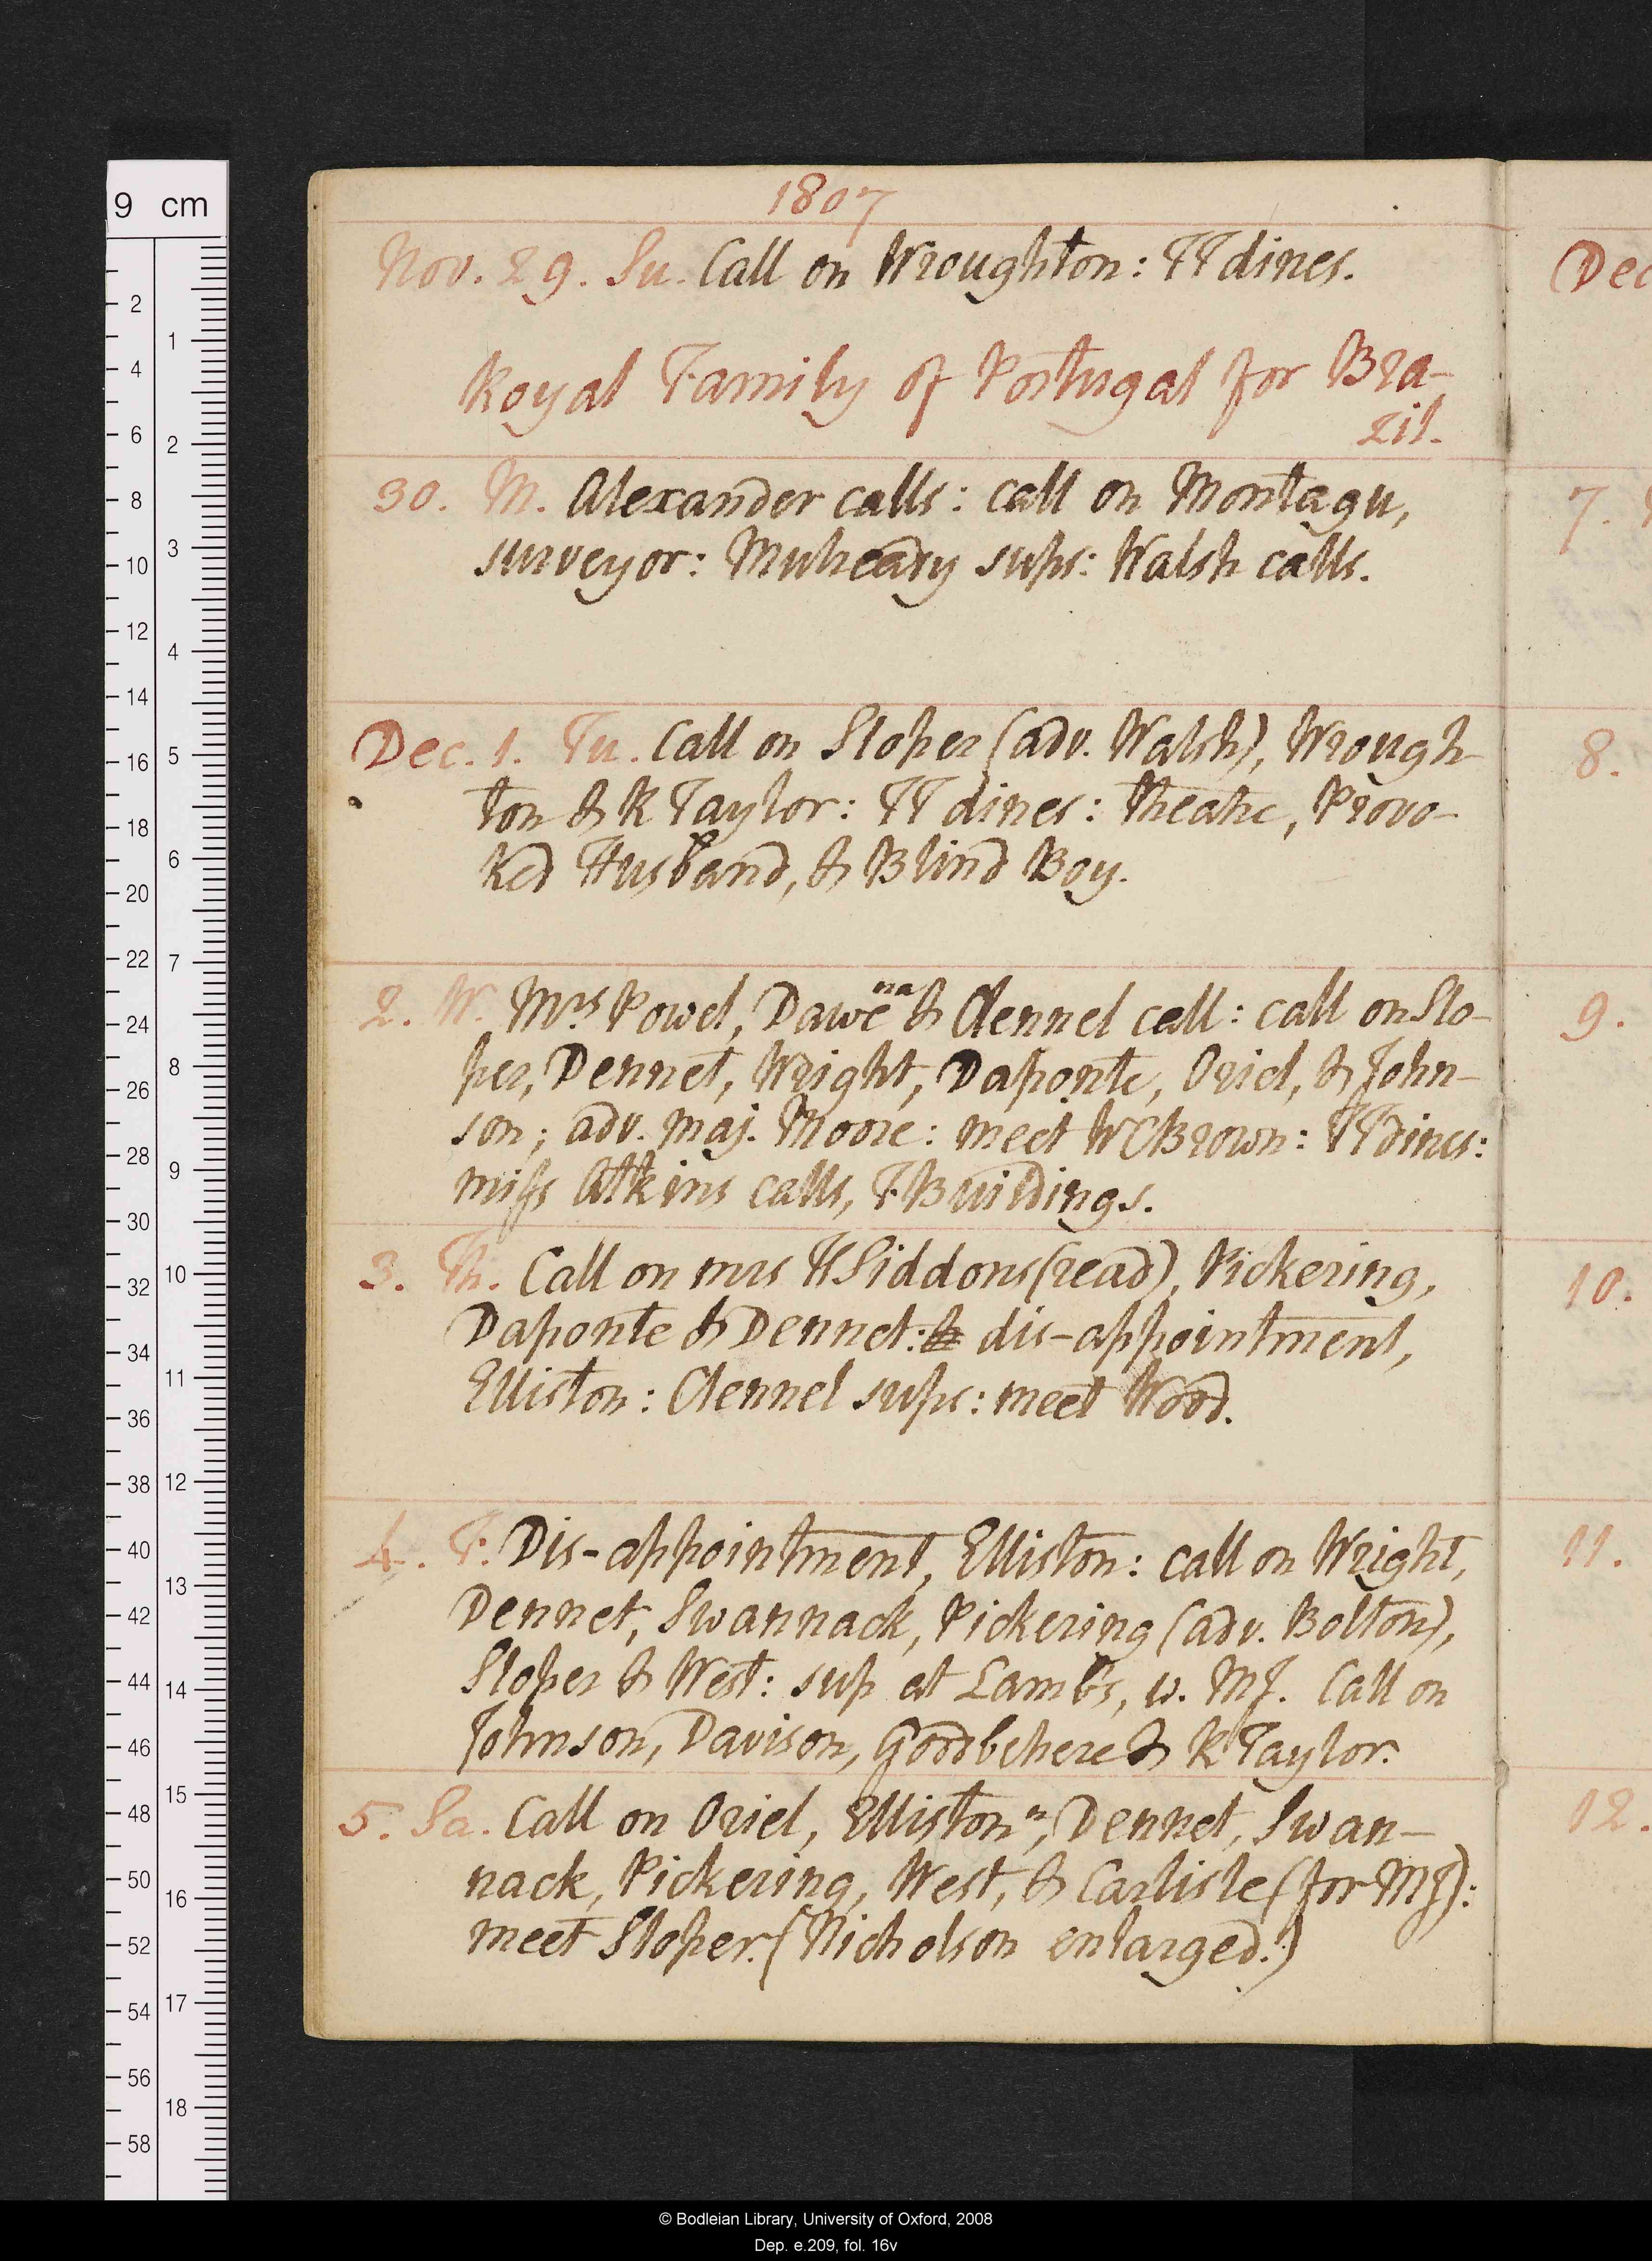 1807
Nov. 29. Su. Call on Wroughton: TT dines.
Royal Family of Portugal for Bra-
zil.
30. M. Alexander calls: call on Montagu,
surveyor: Mulready sups: Walsh calls.
Dec. 1. Tu. Call on Sloper (adv. Walsh), Wrough-
ton & R Taylor: TT dines: theatre, Provo-
ked Husband, & Blind Boy.
2. W. Mrs Powel, Dawe na & Clennel call: call on Slo-
per, Dennet, Wright, Daponte, Oriel, & John-
son; adv. maj. Moore: meet W C Brown: TT dines:
miss Atkins calls, F. Buildings.
3. Th. Call on mrs H Siddons (read), Pickering,
Daponte & Dennet: & dis-appointment,
Elliston: Clennel sups: meet Wood.
4. F. Dis-appointment, Elliston: call on Wright,
Dennet, Swannack, Pickering (adv. Bolton),
Sloper & West: sup at Lamb's, w. MJ. Call on
Johnson, Davison, Goodbehere & R Taylor.
5. Sa. Call on Oriel, Elliston n, Dennet, Swan-
nack, Pickering, West, & Carlisle (for MJ):
meet Sloper. (Nicholson enlarged.)
Dec
7.
8.
9.
10.
11.
12.
9 cm
2
4
6
8
10
12
14
16
18
20
22
24
26
28
30
32
34
36
38
40
42
44
46
48
50
52
54
56
58
1
2
3
4
5
6
7
8
9
10
11
12
13
14
15
16
17
18
© Bodleian Library, University of Oxford, 2008
Dep. e.209, fol. 16v